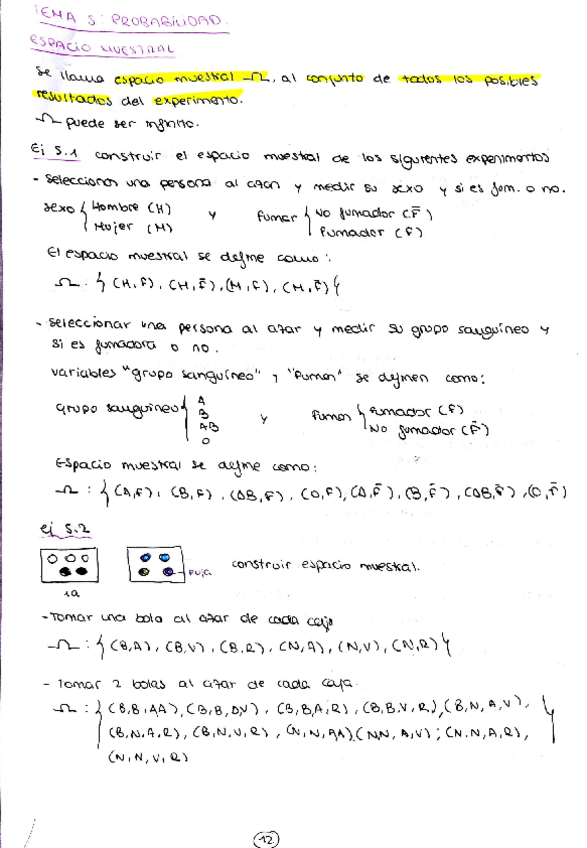 TEMA 5: PROBABILIDAD.
ESPACIO MUESTRAL
Se llama espacio muestral Ω, al conjunto de todos los posibles
resultados del experimento.
Ω puede ser infinito.
Ej 5.1 construir el espacio muestral de los siguientes experimentos
- Seleccionar una persona al azar y medir su sexo y si es fum. o no.
sexo { Hombre (H) y Fumar { No fumador (F̄)
Mujer (M) Fumador (F)
El espacio muestral se define como:
Ω: { (H,F), (H,F̄), (M,F), (M,F̄) }
- Seleccionar una persona al azar y medir su grupo sanguíneo y
si es fumadora o no.
variables "grupo sanguíneo" y "Fumar" se definen como:
Grupo sanguíneo { A
B
AB
O
y Fumar { Fumador (F)
No fumador (F̄)
Espacio muestral se define como:
Ω: { (A,F), (B,F), (AB,F), (O,F), (A,F̄), (B,F̄), (AB,F̄), (O,F̄)
ej 5.2
roja
construir espacio muestral.
1a
- Tomar una bola al azar de cada caja
Ω: { (B,A), (B,V), (B,R), (N,A), (N,V), (N,R) }
- Tomar 2 bolas al azar de cada caja.
Ω: { (B,B,A,R), (B,B,V,R), (B,N,A,V),
(B,N,A,R), (B,N,V,R), (N,N,A,V); (N,N,A,R), }
(N,N,V,R)
12